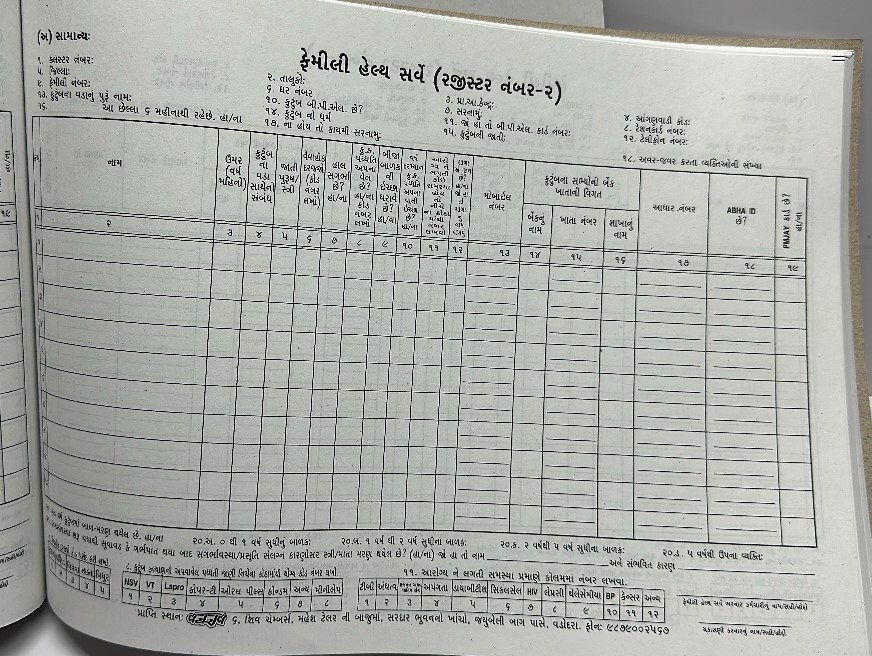 (અ) સામાન્ય:
ફેમીલી હેલ્થ સર્વે (રજીસ્ટર નંબર-૨)
૧. ક્લસ્ટર નંબર: ૨. તાલુકો: ૩. પ્રા.આ.કેન્દ્ર: ૪. આંગણવાડી કોડ:
૫. જિલ્લા: ૬. ઘર નંબર ૭. સરનામું: ૮. રેશનકાર્ડ નંબર:
૯. ફેમીલી નંબર: ૧૦. કુટુંબ બી.પી.એલ. છે? ૧૧. જો હા તો બી.પી.એલ. કાર્ડ નંબર: ૧૨. ટેલીફોન નંબર:
૧૩. કુટુંબના વડાનું પુરૂં નામ: ૧૪. કુટુંબ નો ધર્મ ૧૫. કુટુંબની જાતી:
૧૬. આ છેલ્લા ૬ મહીનાથી રહેછે. હા/ના ૧૭. ના હોય તો કાયમી સરનામુ: ૧૮. અવર-જવર કરતા વ્યક્તિઓની સંખ્યા
નામ
ઉંમર (વર્ષ મહિનો)
કુટુંબ ના વડા સાથેનો સંબંધ
જાતી પુરૂષ/ સ્ત્રી
વૈવાહીક દરજ્જો (કોડ નંબર લખો)
હાલ સગર્ભા છે? હા/ના
કુ.ક. પધ્ધતિ અપના વેલ છે? હા/ના કોડ નંબર લખો
બીજા બાળક ની ઈચ્છા ધરાવે છે? હા/ના
મોબાઈલ નંબર
કુટુંબના સભ્યોની બેંક ખાતાની વિગત
બેંકનું નામ
ખાતા નંબર
શાખાનું નામ
આધાર નંબર
ABHA ID છે?
PMJAY કાર્ડ છે? હા/ના
૨ ૩ ૪ ૫ ૬ ૭ ૮ ૯ ૧૦ ૧૧ ૧૨ ૧૩ ૧૪ ૧૫ ૧૬ ૧૭ ૧૮ ૧૯
કુટુંબમાં બાળ-મરણ થયેલ છે. હા/ના ૨૦.અ. ૦ થી ૧ વર્ષ સુધીનું બાળક: ૨૦.બ. ૧ થી ૨ વર્ષ સુધીના બાળક: ૨૦.ક. ૨ વર્ષથી ૫ વર્ષ સુધીના બાળક: ૨૦.ડ. ૫ વર્ષથી ઉપના વ્યક્તિ:
સુવાવડ કે ગર્ભપાત થયા બાદ સગર્ભાવસ્થા/પ્રસૂતિ સંલગ્ન કારણોસર સ્ત્રી/માતા મરણ થયેલ છે? (હા/ના) જો હા તો નામ અને સંભવિત કારણ
૮. કુટુંબ કલ્યાણની અપનાવેલ પધ્ધતી જાણી નિચેના કોઠામાંથી યોગ્ય કોડ નંબર લખો.
૧૧. આરોગ્ય ને લગતી સમસ્યા પ્રમાણે કોલમમાં નંબર લખવા.
NSV VT Lapro કોપર-ટી ઓરલ પીલ્સ કોન્ડમ અન્ય મીનીલેપ
૧ ૨ ૩ ૪ ૫ ૬ ૭ ૮
ટીબી અંધત્વ અપંગતા ડાયાબીટીસ સિકલસેલ HIV લેપ્રસી થેલેસેમીયા BP કેન્સર અન્ય
૧ ૨ ૩ ૪ ૫ ૬ ૭ ૮ ૯ ૧૦ ૧૧ ૧૨
ફેમીલી હેલ્થ સર્વે કરનાર કર્મચારીનું નામ/સહી/હોદ્દો
ચકાસણી કરનારનું નામ/સહી/હોદ્દો
પ્રાપ્તિ સ્થાન: ૬, શિવ ચેમ્બર્સ, મહેશ ટેલર ની બાજુમાં, સરદાર ભુવનનો ખાંચો, જ્યુબેલી બાગ પાસે, વડોદરા. ફોન: ૯૮૭૯૦૦૨૫૬૭